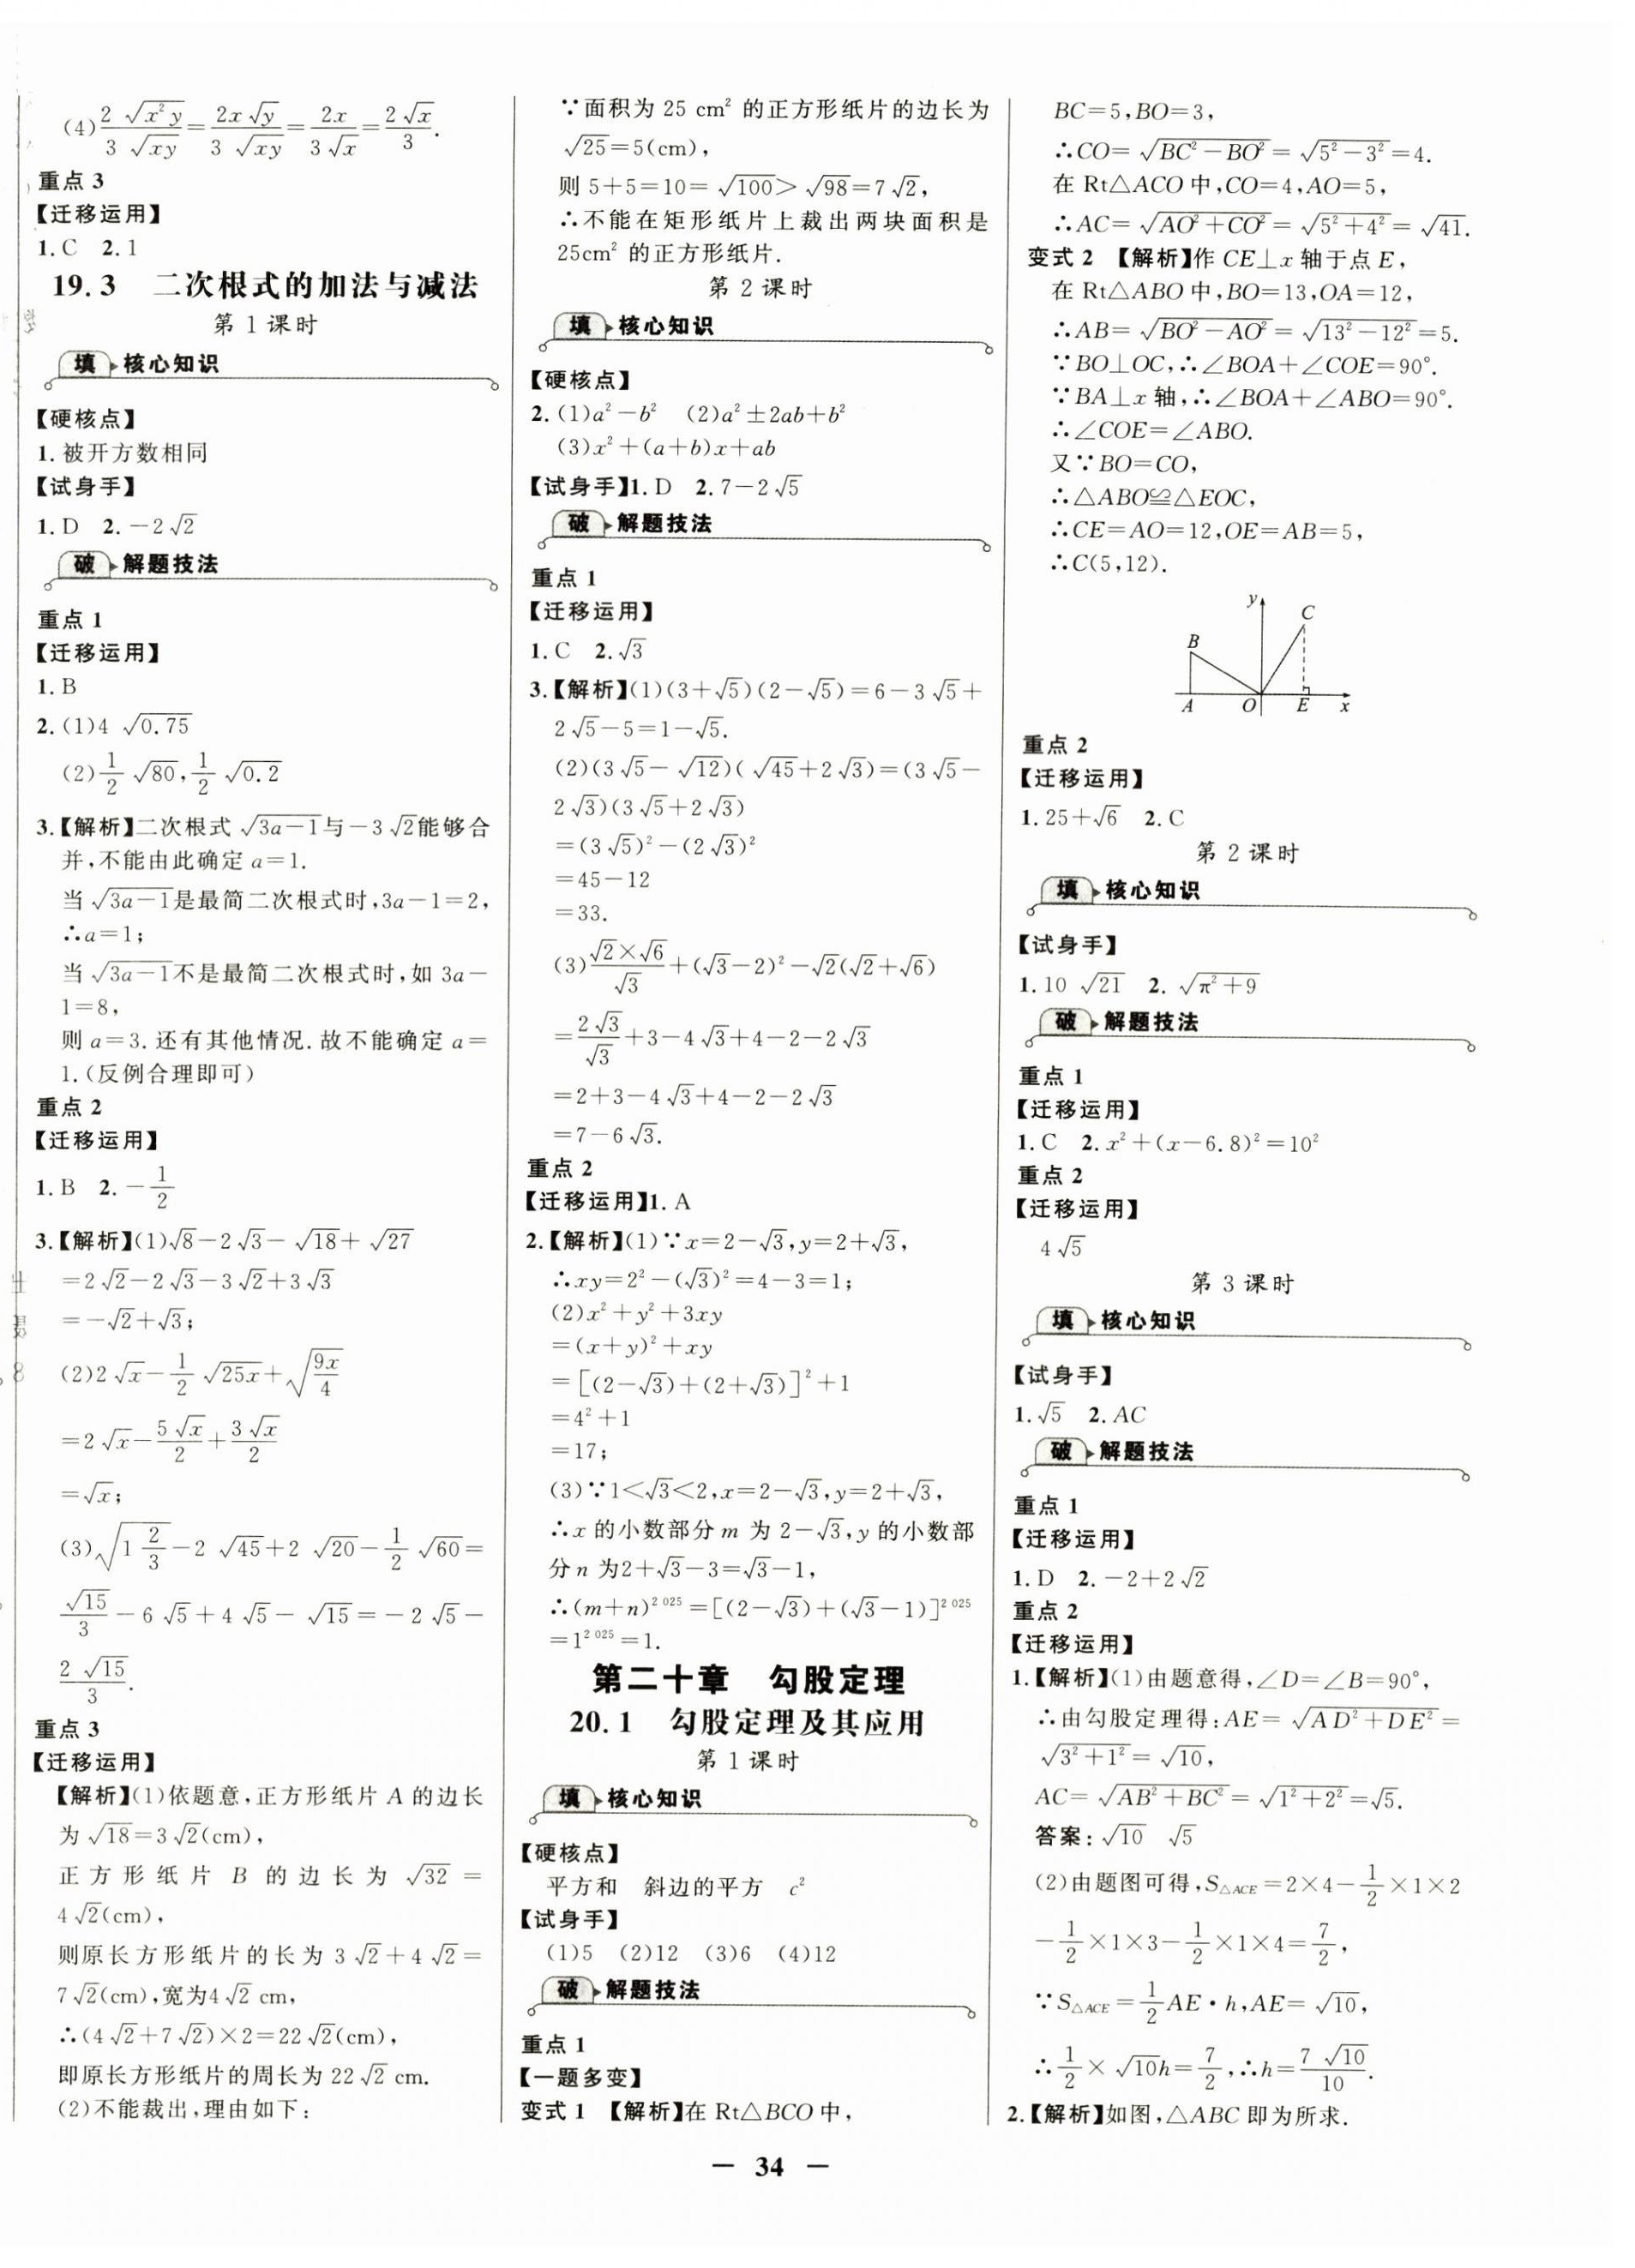 (4) 2√(x²y)/3√(xy) = 2x√y/3√(xy) = 2x/3√x = 2√x/3.
重点 3
【迁移运用】
1.C 2.1
19.3 二次根式的加法与减法
第 1 课时
填 核心知识
【硬核点】
1.被开方数相同
【试身手】
1.D 2.-2√2
破 解题技法
重点 1
【迁移运用】
1.B
2.(1)4 √0.75
(2)1/2 √80, 1/2 √0.2
3.【解析】二次根式 √(3a-1)与-3√2能够合
并,不能由此确定 a=1.
当 √(3a-1)是最简二次根式时,3a-1=2,
∴a=1;
当 √(3a-1)不是最简二次根式时,如 3a-
1=8,
则 a=3.还有其他情况.故不能确定 a=
1.(反例合理即可)
重点 2
【迁移运用】
1.B 2.-1/2
3.【解析】(1)√8-2√3-√18+√27
=2√2-2√3-3√2+3√3
=-√2+√3;
(2)2√x-1/2 √(25x)+√(9x/4)
=2√x-5√x/2+3√x/2
=√x;
(3)√(1 2/3)-2√45+2√20-1/2 √60=
√15/3-6√5+4√5-√15=-2√5-
2√15/3.
重点 3
【迁移运用】
【解析】(1)依题意,正方形纸片 A 的边长
为 √18=3√2(cm),
正方形纸片 B 的边长为 √32=
4√2(cm),
则原长方形纸片的长为 3√2+4√2=
7√2(cm),宽为4√2 cm,
∴(4√2+7√2)×2=22√2(cm),
即原长方形纸片的周长为 22√2 cm.
(2)不能裁出,理由如下:
∵面积为 25 cm² 的正方形纸片的边长为
√25=5(cm),
则 5+5=10=√100>√98=7√2,
∴不能在矩形纸片上裁出两块面积是
25cm² 的正方形纸片.
第 2 课时
填 核心知识
【硬核点】
2.(1)a²-b² (2)a²±2ab+b²
(3)x²+(a+b)x+ab
【试身手】1.D 2.7-2√5
破 解题技法
重点 1
【迁移运用】
1.C 2.√3
3.【解析】(1)(3+√5)(2-√5)=6-3√5+
2√5-5=1-√5.
(2)(3√5-√12)(√45+2√3)=(3√5-
2√3)(3√5+2√3)
=(3√5)²-(2√3)²
=45-12
=33.
(3)√2×√6/√3+(√3-2)²-√2(√2+√6)
=2√3/√3+3-4√3+4-2-2√3
=2+3-4√3+4-2-2√3
=7-6√3.
重点 2
【迁移运用】1.A
2.【解析】(1)∵x=2-√3,y=2+√3,
∴xy=2²-(√3)²=4-3=1;
(2)x²+y²+3xy
=(x+y)²+xy
=[(2-√3)+(2+√3)]²+1
=4²+1
=17;
(3)∵1<√3<2,x=2-√3,y=2+√3,
∴x 的小数部分 m 为 2-√3,y 的小数部
分 n 为2+√3-3=√3-1,
∴(m+n)^2 025=[(2-√3)+(√3-1)]^2 025
=1^2 025=1.
第二十章 勾股定理
20.1 勾股定理及其应用
第 1 课时
填 核心知识
【硬核点】
平方和 斜边的平方 c²
【试身手】
(1)5 (2)12 (3)6 (4)12
破 解题技法
重点 1
【一题多变】
变式 1 【解析】在 Rt△BCO 中,
BC=5,BO=3,
∴CO=√(BC²-BO²)=√(5²-3²)=4.
在 Rt△ACO 中,CO=4,AO=5,
∴AC=√(AO²+CO²)=√(5²+4²)=√41.
变式 2 【解析】作 CE⊥x 轴于点 E,
在 Rt△ABO 中,BO=13,OA=12,
∴AB=√(BO²-AO²)=√(13²-12²)=5.
∵BO⊥OC,∴∠BOA+∠COE=90°.
∵BA⊥x 轴,∴∠BOA+∠ABO=90°.
∴∠COE=∠ABO.
又∵BO=CO,
∴△ABO≌△EOC,
∴CE=AO=12,OE=AB=5,
∴C(5,12).
y
C
B
A O E x
重点 2
【迁移运用】
1.25+√6 2.C
第 2 课时
填 核心知识
【试身手】
1.10 √21 2.√(π²+9)
破 解题技法
重点 1
【迁移运用】
1.C 2.x²+(x-6.8)²=10²
重点 2
【迁移运用】
4√5
第 3 课时
填 核心知识
【试身手】
1.√5 2.AC
破 解题技法
重点 1
【迁移运用】
1.D 2.-2+2√2
重点 2
【迁移运用】
1.【解析】(1)由题意得,∠D=∠B=90°,
∴由勾股定理得:AE=√(AD²+DE²)=
√(3²+1²)=√10,
AC=√(AB²+BC²)=√(1²+2²)=√5.
答案:√10 √5
(2)由题图可得,S△ACE=2×4-1/2×1×2
-1/2×1×3-1/2×1×4=7/2,
∵S△ACE=1/2 AE·h,AE=√10,
∴1/2×√10h=7/2,∴h=7√10/10.
2.【解析】如图,△ABC 即为所求.
— 34 —